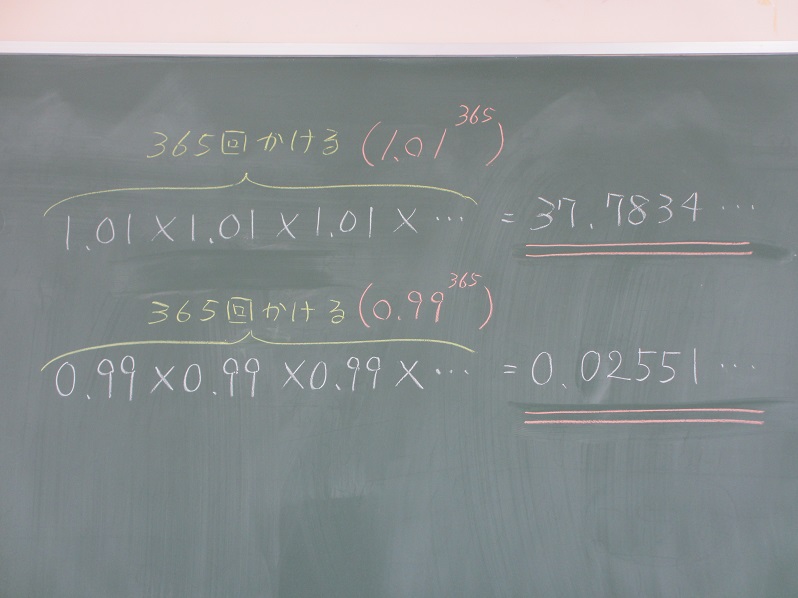 365回かける(1.01^365)
1.01×1.01×1.01×… = 37.7834…
365回かける(0.99^365)
0.99×0.99×0.99×… = 0.02551…